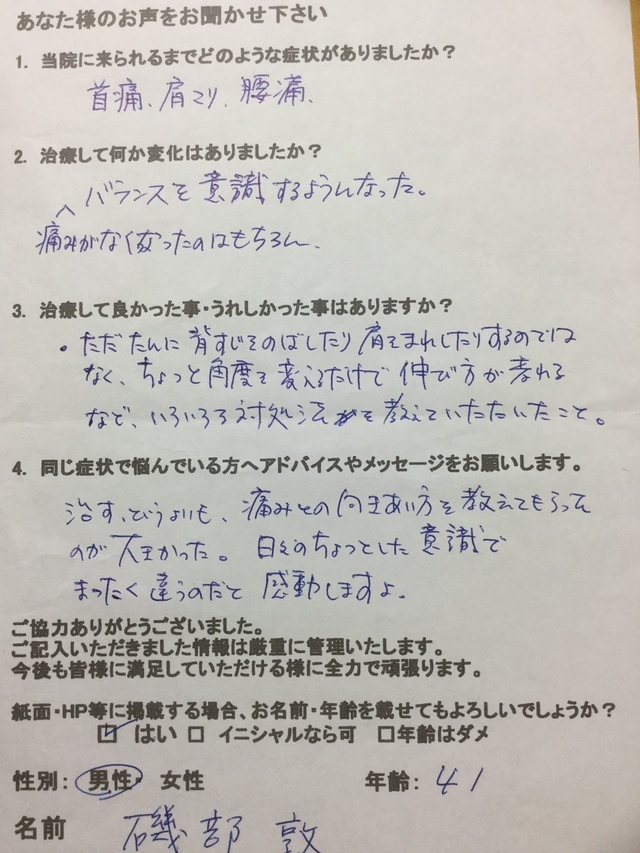 あなた様のお声をお聞かせ下さい
1. 当院に来られるまでどのような症状がありましたか？
首痛、肩こり、腰痛、
2. 治療して何か変化はありましたか？
バランスを意識するようになった。
痛みがなくなったのはもちろん、
3. 治療して良かった事・うれしかった事はありますか？
・ただたんに背すじをのばしたり肩をまわしたりするのでは
なく、ちょっと角度を変えるだけで伸び方が変わる
など、いろいろな対処法を教えていただいたこと。
4. 同じ症状で悩んでいる方へアドバイスやメッセージをお願いします。
治す、というよりも、痛みとの向きあい方を教えてもらって
のが大きかった。日々のちょっとした意識で
まったく違うのだと感動しますよ。
ご協力ありがとうございました。
ご記入いただきました情報は厳重に管理いたします。
今後も皆様に満足していただける様に全力で頑張ります。
紙面・HP等に掲載する場合、お名前・年齢を載せてもよろしいでしょうか？
☑ はい □ イニシャルなら可 □年齢はダメ
性別： 男性・ 女性 年齢： 41
名前 磯部 敦